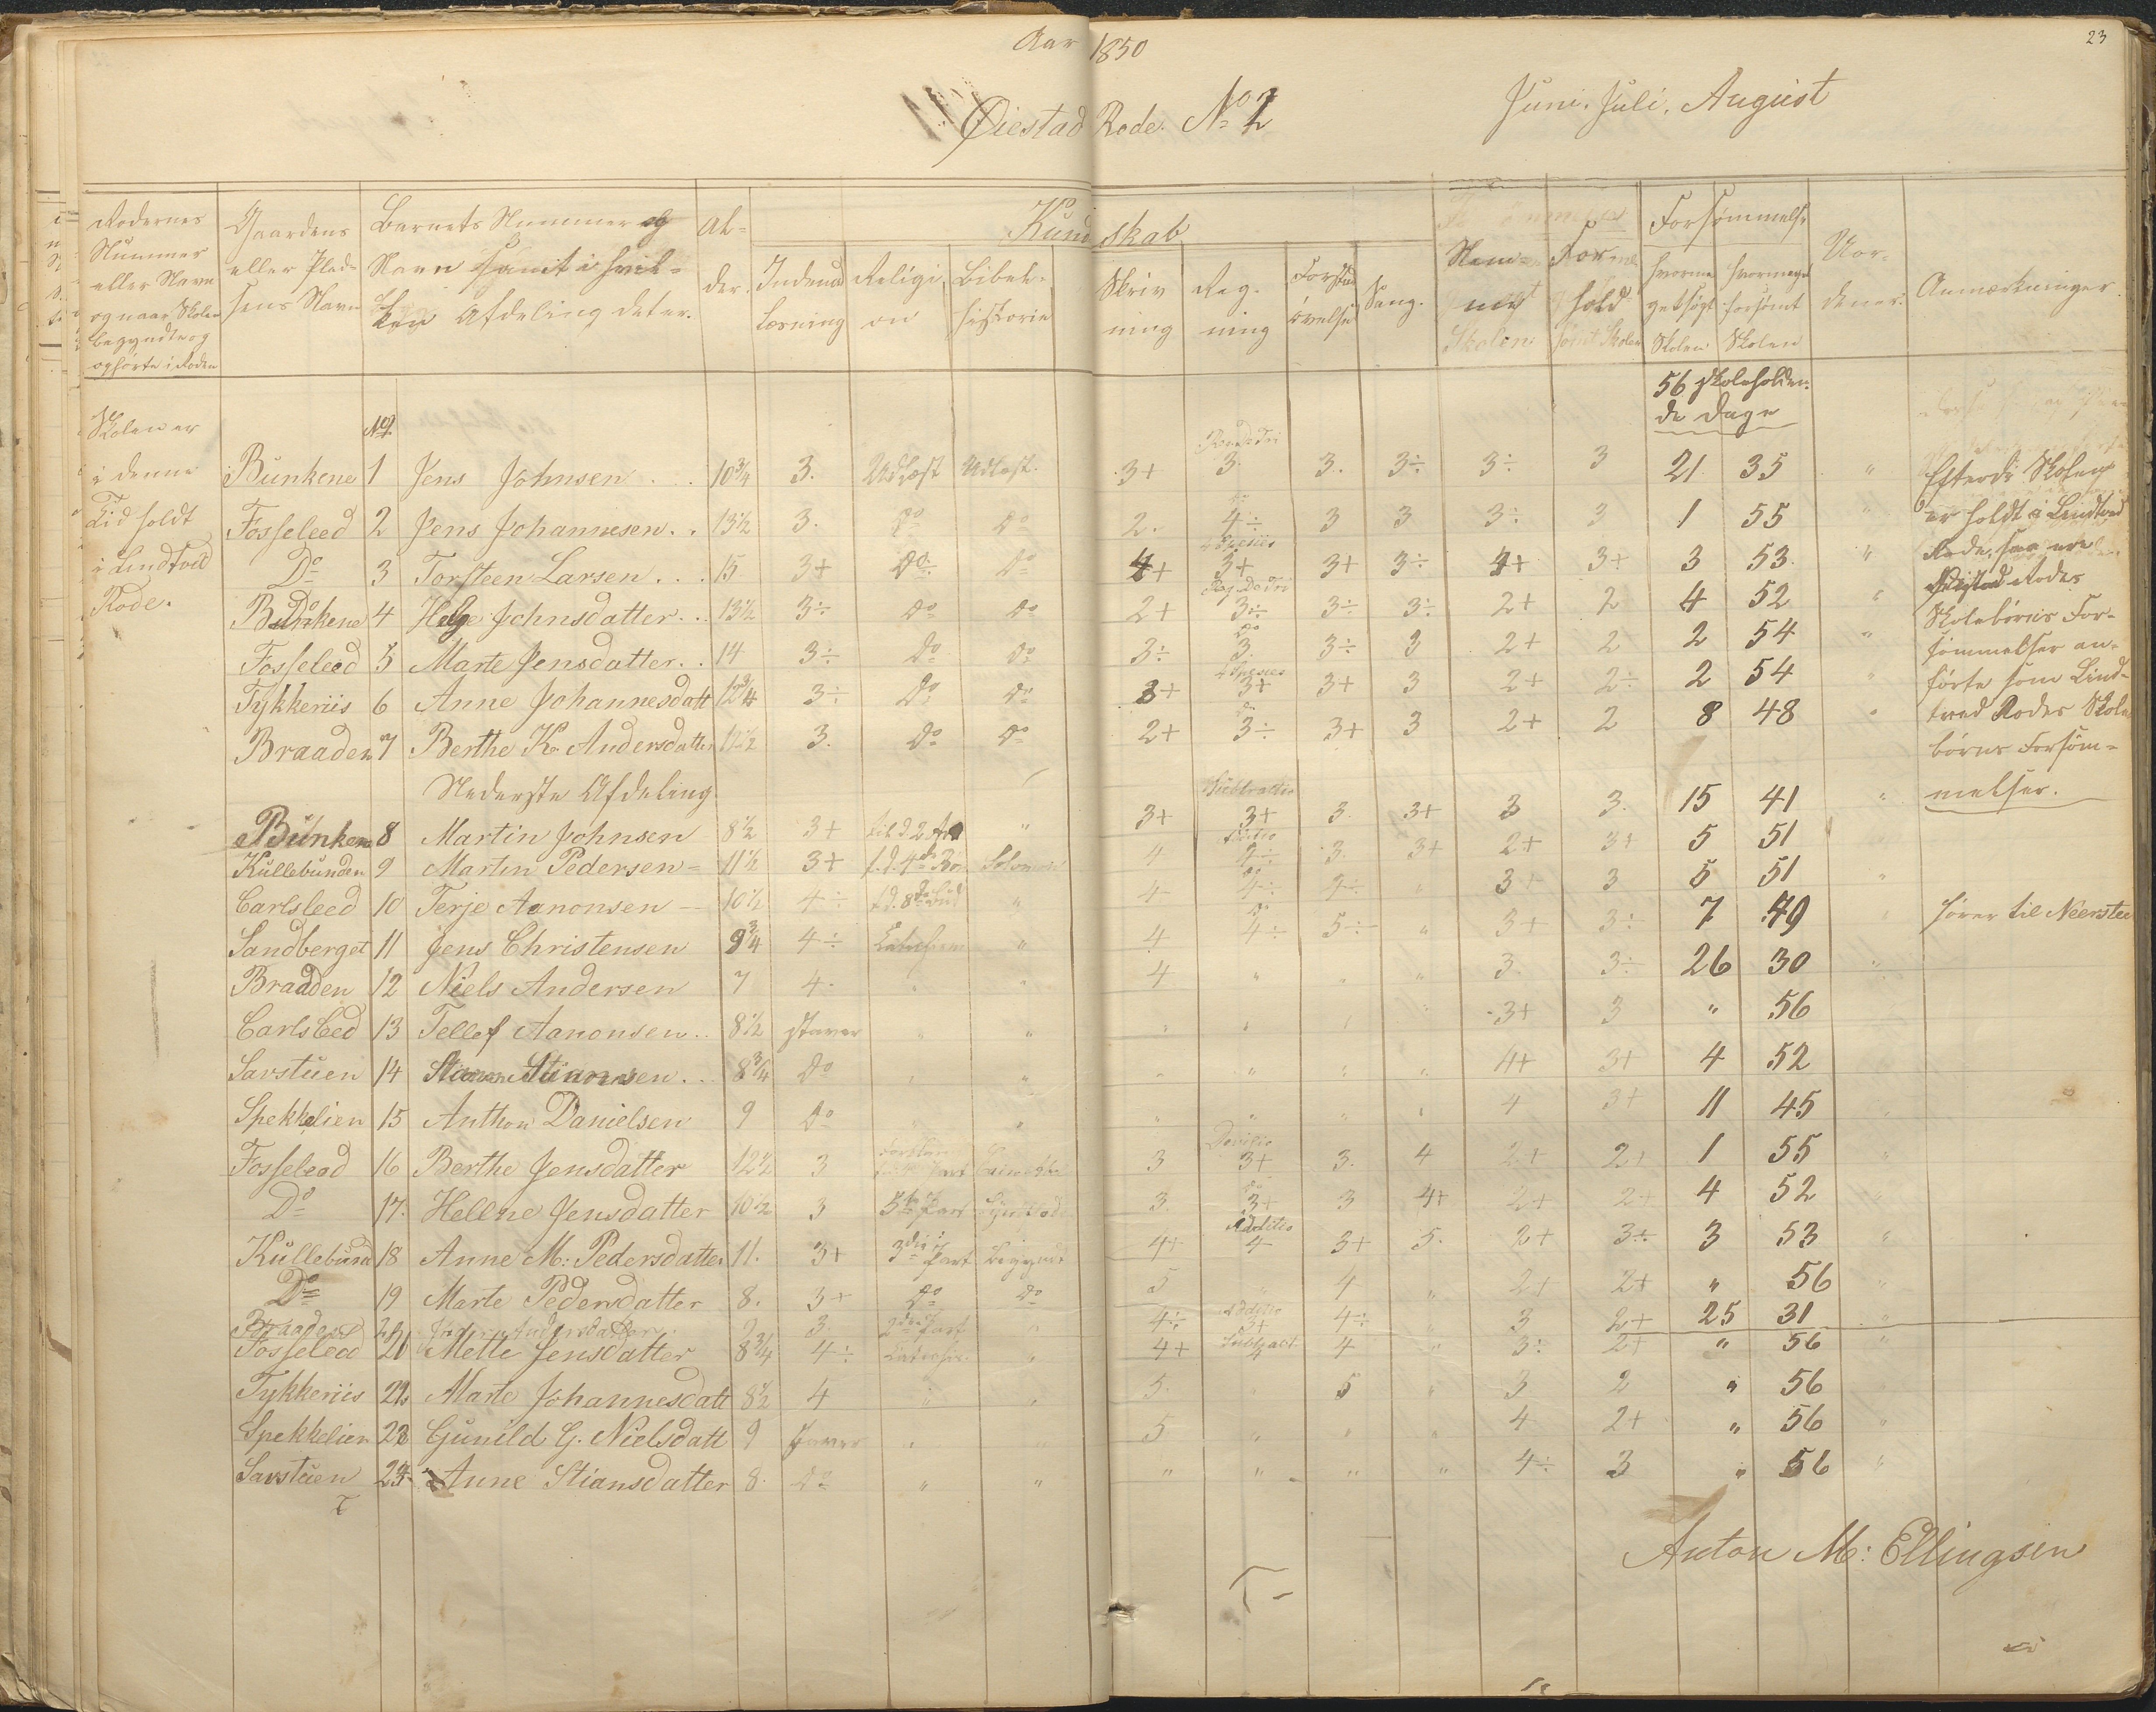 Aar 1850
23
Øiestad Rode. No 2 Juni, Juli, August
Rodernes Nummer eller Navn og naar Skolen begyndte og ophørte i Roden
Gaardens eller Pladsens Navn
Barnets Nummer og Navn samt i hvilken Afdeling det er.
Alder.
Kundskab
Indenadlæsning
Religion
Bibelhistorie
Skrivning
Regning
Forstandsøvelse
Sang.
Nemme
Forhold
Forsømmelse
hvormeget søgt Skolen
hvormeget forsømt Skolen
Anmærkninger.
56 skoleholdende Dage
Skolen er
i denne
Tid holdt
i Lindtvid
Rode.
No
Bunkene 1 Jens Johnsen 10 3/4 3. Udlæst Udlæst. 3+ 3. 3. 3÷ 3÷ 3 21. 35 "
Fosseleed 2 Jens Johannesen 13 1/2 3. Do Do 2. 4÷ 3 3 3÷ 3 1 55 "
Do 3 Torsteen Larsen 15 3+ Do Do 4+ 3+ 3+ 3÷ 4+ 3+ 3 53. "
Bunkene 4 Helge Johnsdatter 13 1/2 3÷ Do Do 2+ 3÷ 3÷ 3÷ 2+ 2 4 52 "
Fosseleed 5 Marte Jensdatter 14 3÷ Do Do 3÷ 3. 3÷ 3 2+ 2 2 54 "
Tykkeriis 6 Anne Johannesdatt 12 3/4 3÷ Do Do 3+ 3+ 3+ 3 2+ 2÷ 2 54 "
Braaden 7 Berthe K. Andersdatter 12 1/2 3. Do Do 2+ 3÷ 3+ 3 2+ 2 8 48 "
Efterdi Skolen
er holdt i Lindtvid
Rode, saa ere
Øiestad Rodes
Skolebørns For-
sømmelser an-
førte som Lind-
tved Rodes Skole
børns Forsøm-
melser.
Nederste Afdeling
Bunkene 8 Martin Johnsen 8 1/2 3+ til d 2 Art " 3+ Subtractio 3+ 3. 3+ 3 3. 15 41 "
Kullebunden 9 Martin Pedersen 11 1/2 3+ t. d. 4de Bøn Solomon 4 3. 3+ 2+ 3+ 5 51
Carlsleed 10 Terje Aanonsen 10 1/2 4÷ t. d. 8de Bud " 4 4÷ 4÷ " 3+ 3 5 51 "
Sandberget 11 Jens Christensen 9 3/4 4÷ " 4 4÷ 5÷ " 3+ 3÷ 7 49 " hører til Neersteen
Braaden 12 Niels Andersen 7 4. " " 4 " " " 3. 3÷ 26 30 "
Carlsleed 13 Tellef Aanonsen 8 1/2 staver " " " " " " 3+ 3 " 56
Savstuen 14 Stian Stiansen 8 3/4 Do " " " " " " 4+ 3+ 4 52
Spekkelien 15 Anthon Danielsen 9 Do " " " " " " 4 3+ 11 45 "
Fosselead 16 Berthe Jensdatter 12 1/2 3 3 Devisio 3+ 3. 4 2+ 2+ 1 55 "
Do 17. Hellene Jensdatter 10 1/2 3 5te Part 3. Do 3+ 3 4+ 2+ 2+ 4 52 "
Kullebund 18 Anne M: Pedersdatter 11. 3+ 3die Part begyndt 4+ Additio 4 3+ 5. 2+ 3÷ 3 53 "
Do 19 Marte Pedersdatter 8. 3+ Do Do 5 " 4 " 2+ 2+ " 56 "
Braaden 20 Andersdatter 9 3. 2den Part " 4÷ Additio 3+ 4÷ " 3 2+ 25 31 "
Fosselead 21 Mette Jensdatter 8 3/4 4÷ " 4+ Subtract. 4 4 " 3÷ 2+ " 56 "
Tykkeriis 22 Marte Johannesdatt 8 1/2 4 " " 5. " 5 " 3 2 " 56
Spekkelien 23 Gunild G. Nielsdatt 9 staver " " 5 " " " 4 2+ " 56 "
Savstuen 24 Anne Stiansdatter 8. Do " " " " " " 4÷ 3 " 56 "
Anton M: Ellingsen